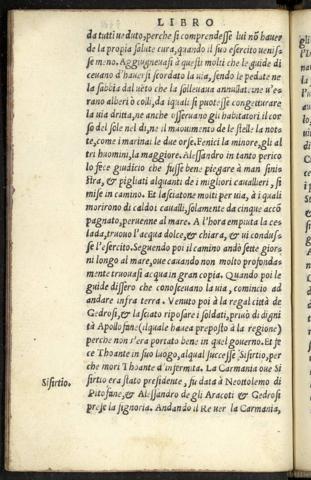 LIBRO
da tutti ueduto, perche si comprendesse lui nõ hauer
de la propia salute cura, quando il suo esercito uenis
se meno. Aggiugneuasi à questi molti che le guide di
ceuano d'hauersi scordato la uia, sendo le pedate ne
la sabbia dal uẽto che la solleuaua annullate: ne u'e-
rano alberi ò colli, da iquali si potesse congetturare
la uia dritta, ne anche osseruano gli habitatori il cor
so del sole nel dì, ne il mouimento de le stelle la not-
te, come i marinai le due orse. Fenici la minore, gli al
tri huomini, la maggiore. Alessandro in tanto perico
lo fece giudicio che fusse bene piegare à man sini-
stra, & pigliati alquanti de i migliori cauallieri, si
mise in camino. Et lasciatone molti per uia, à i quali
morirono di caldo i caualli, solamente da cinque accõ
pagnato, peruenne al mare. A l'hora empiuta la ce-
lada, truouo l'acqua dolce, & chiara, & ui condus-
se l'esercito. Seguendo poi il camino andò sette gior-
ni longo al mare, oue cauando non molto profonda-
mente truouasi acqua in gran copia. Quando poi le
guide dissero che conosceuano la uia, cominciò ad
andare infra terra. Venuto poi à la regal città de
Gedrosi, & lasciato riposare i soldati, priuò di digni
tà Apollofane (ilquale haueua preposto à la regione)
perche non s'era portato bene in quel gouerno. Et fe
ce Thoante in suo luogo, alqual successe Sifirtio, per
che morì Thoante d'infermità. La Carmania oue Si
Sifirtio. firtio era stato presidente, fu data à Neottolemo di
Pitofane, & Alessandro de gli Aracoti & Gedrosi
prese la signoria. Andando il Re uer la Carmania,